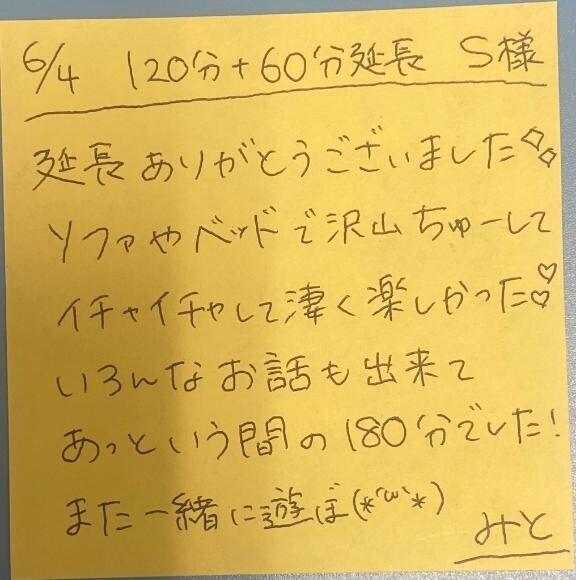 6/4 120分+60分延長 S様
延長ありがとうございました
ソファやベッドで沢山ちゅーして
イチャイチャして凄く楽しかった♡♡
いろんなお話も出来て
あっという間の180分でした!
また一緒に遊ぼ(*´ω`*)
みと